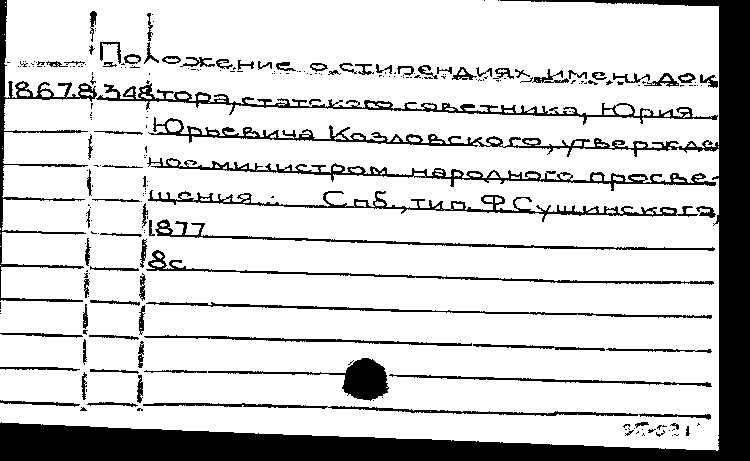 Положение о стипендиях имени док
1867.8.348 тора, статского советника, Юрия
Юрьевича Козловского, утвержде
ное министром народного просве-
щения. Спб., тип. Ф. Сущинского,
1877
8с